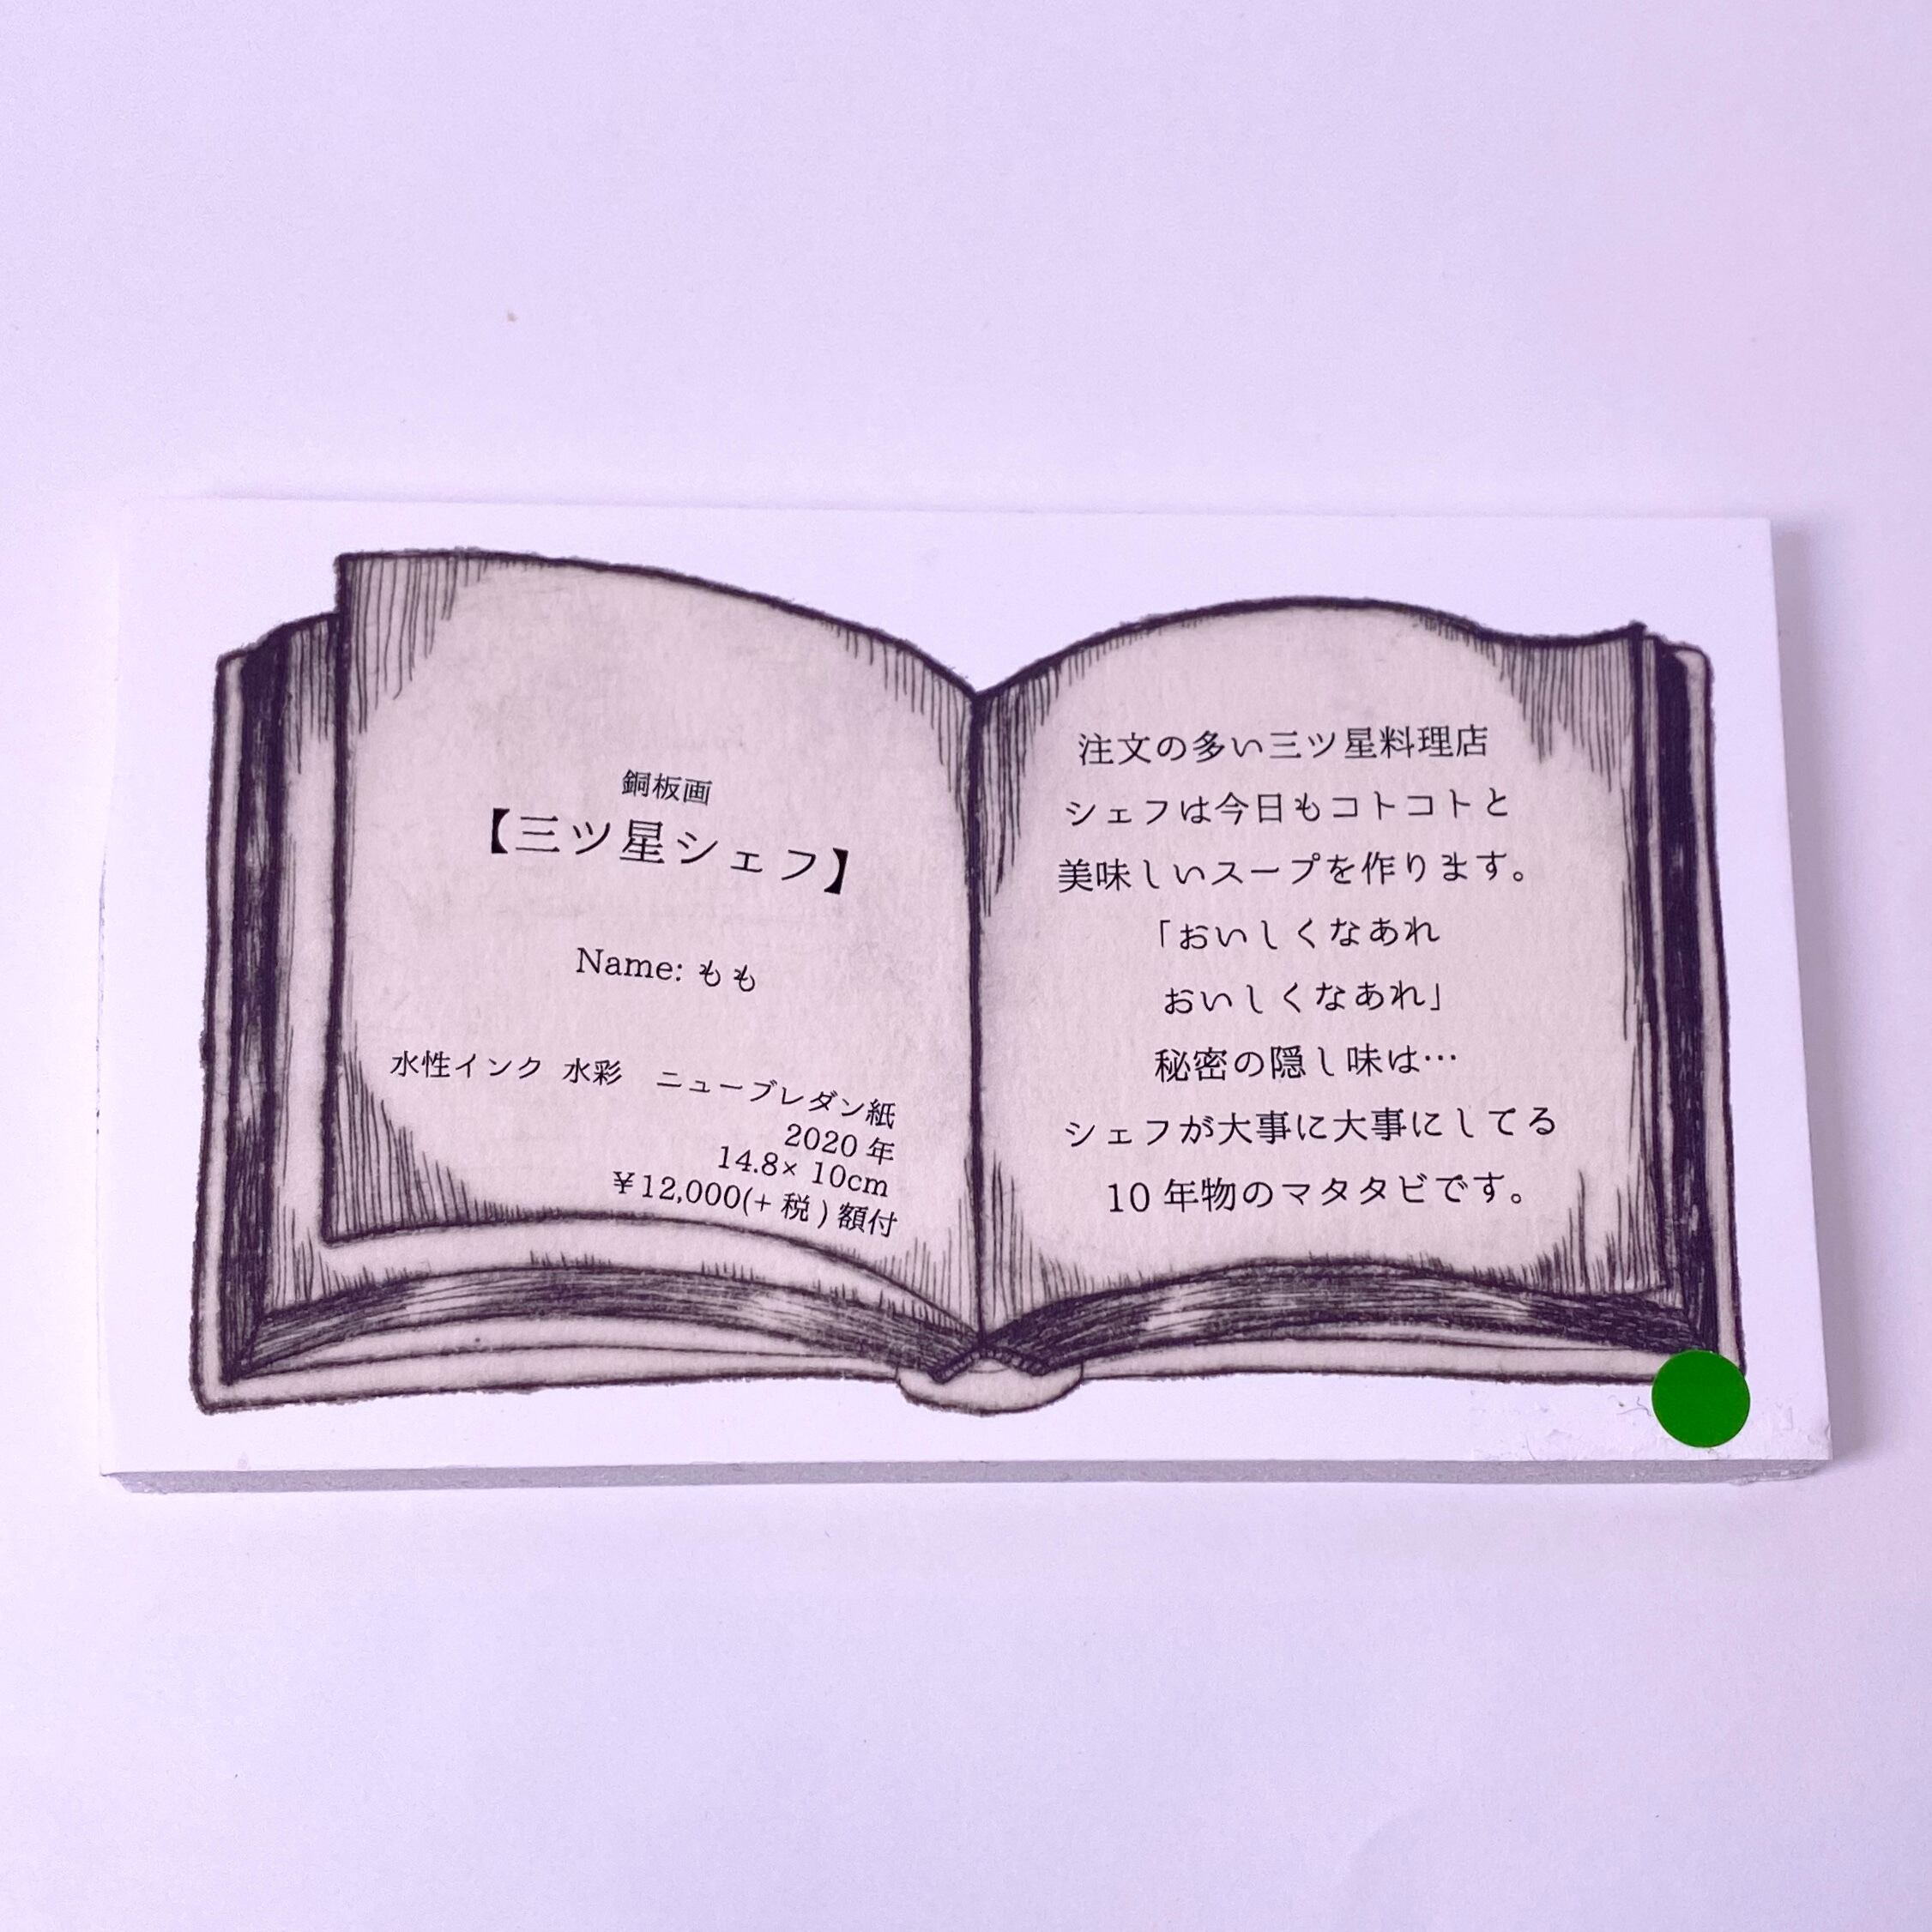 銅板画
【三ツ星シェフ】
Name: もも
水性インク 水彩　ニューブレダン紙
2020 年
14.8× 10cm
￥12,000(+ 税 ) 額付
注文の多い三ツ星料理店
シェフは今日もコトコトと
美味しいスープを作ります。
「おいしくなあれ
おいしくなあれ」
秘密の隠し味は…
シェフが大事に大事にしてる
10 年物のマタタビです。